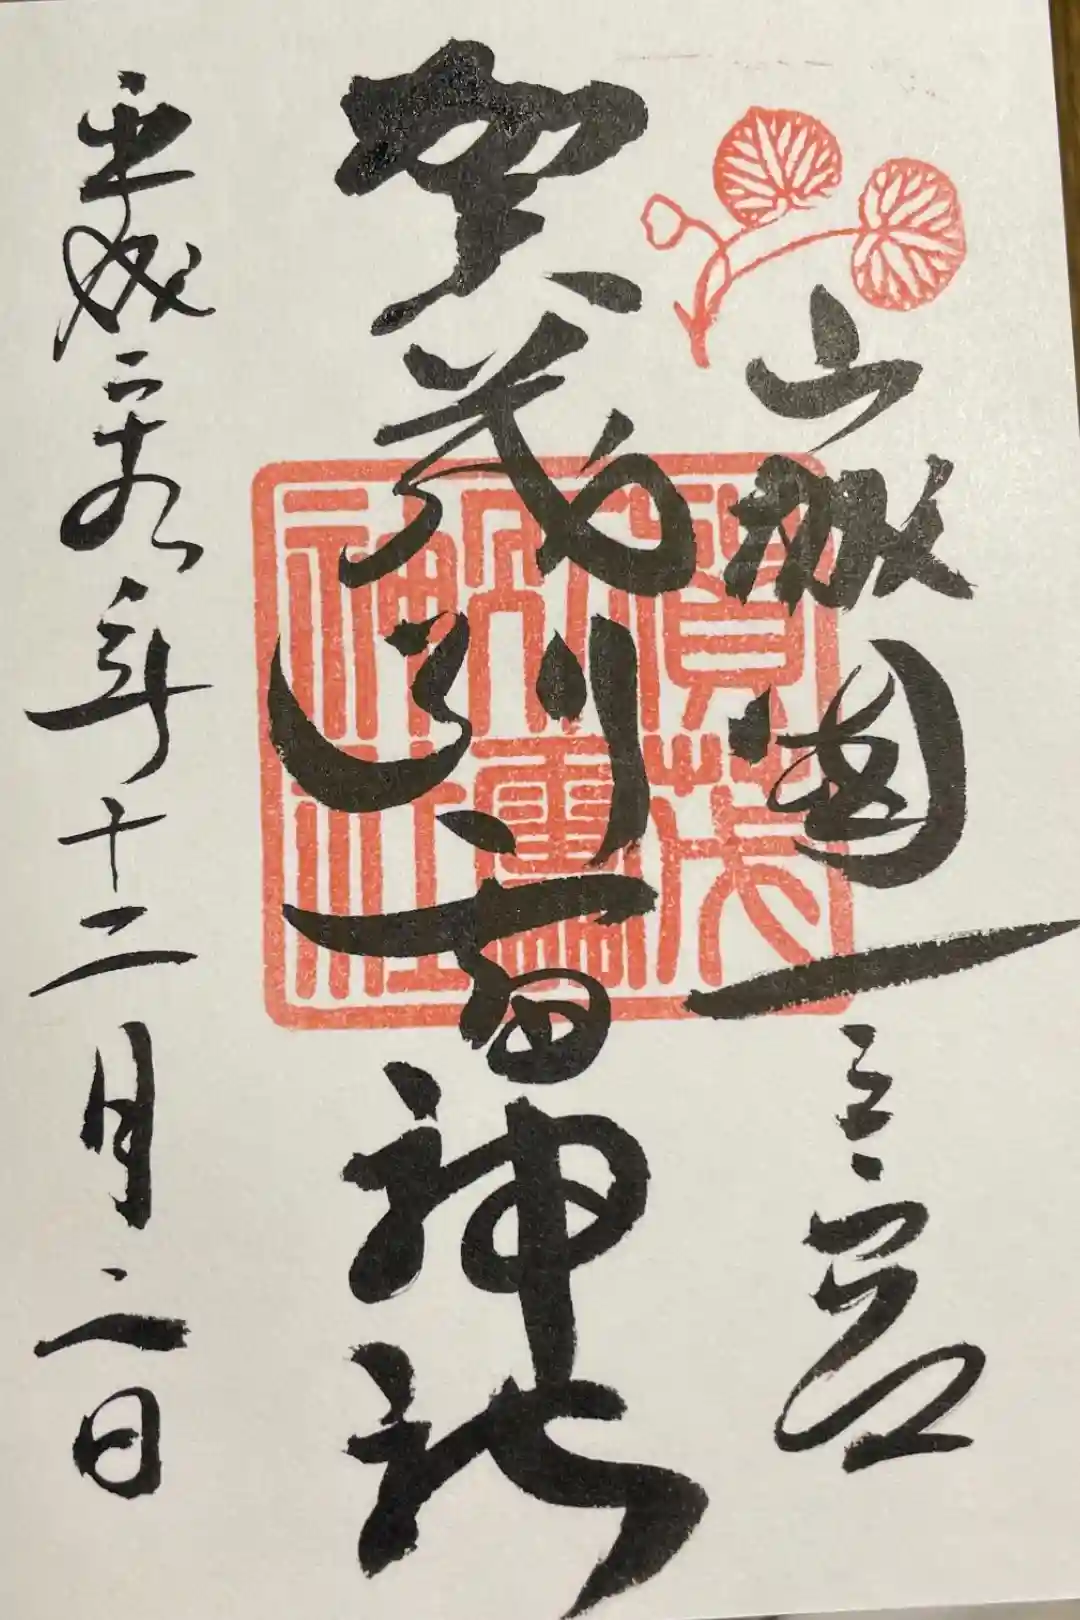 山城國一之宮
賀茂別雷神社
平成二十九年十二月二日
賀茂
別雷
神社